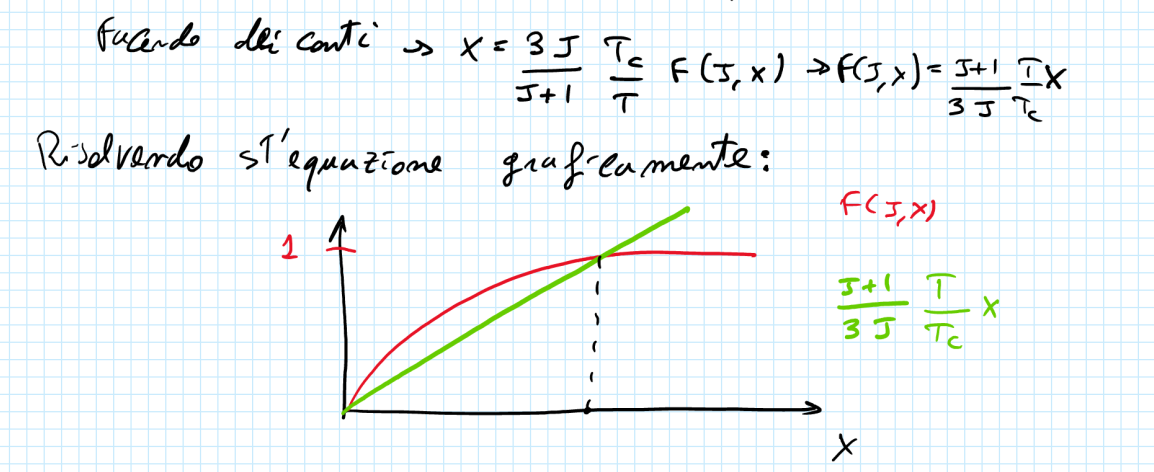 Facendo dei conti → X = 3J/(J+1) T_c/T F(J,X) → F(J,X) = (J+1)/(3J) T/T_c X
Risolvendo st'equazione graficamente:
F(J,X)
1
(J+1)/(3J) T/T_c X
X